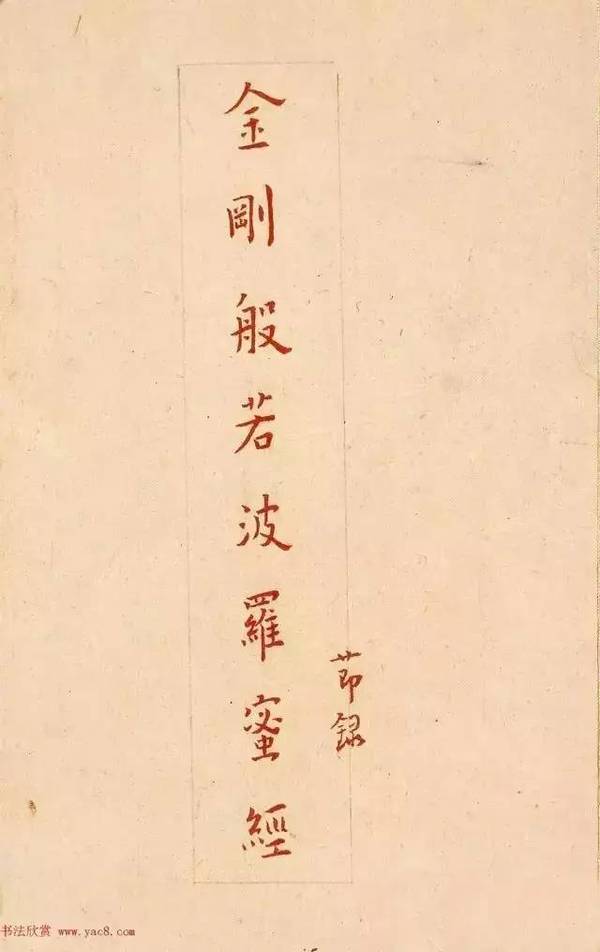 金剛般若波羅蜜經
節録
书法欣赏 www.yac8.com